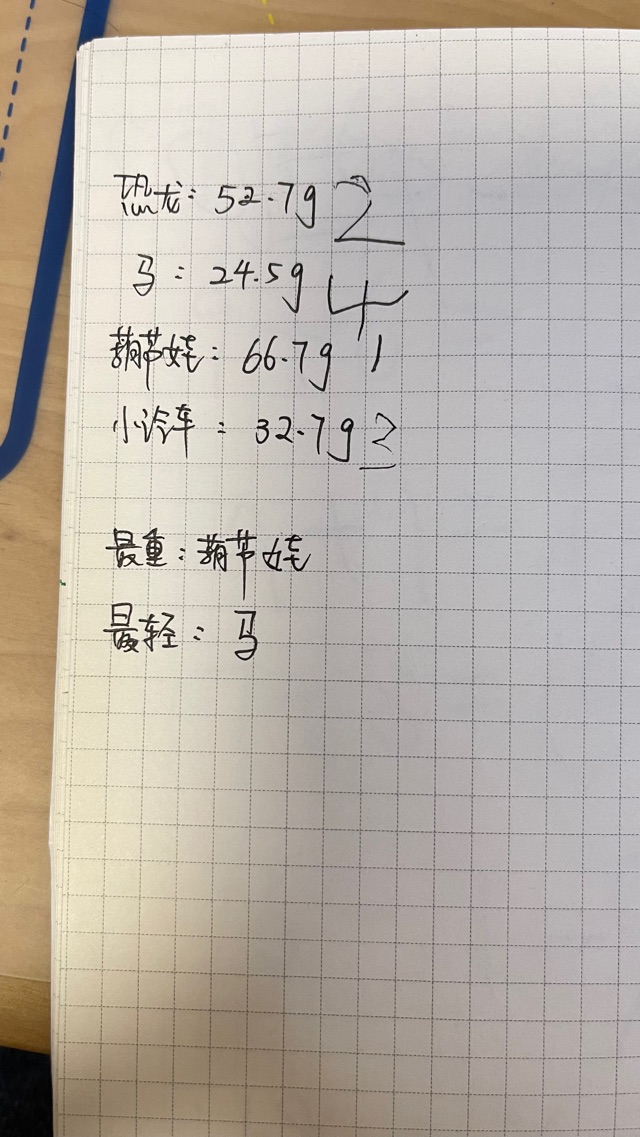 恐龙：52.7g 2
马：24.5g 4
葫芦娃：66.7g 1
小冷车：32.7g 3
最重：葫芦娃
最轻：马